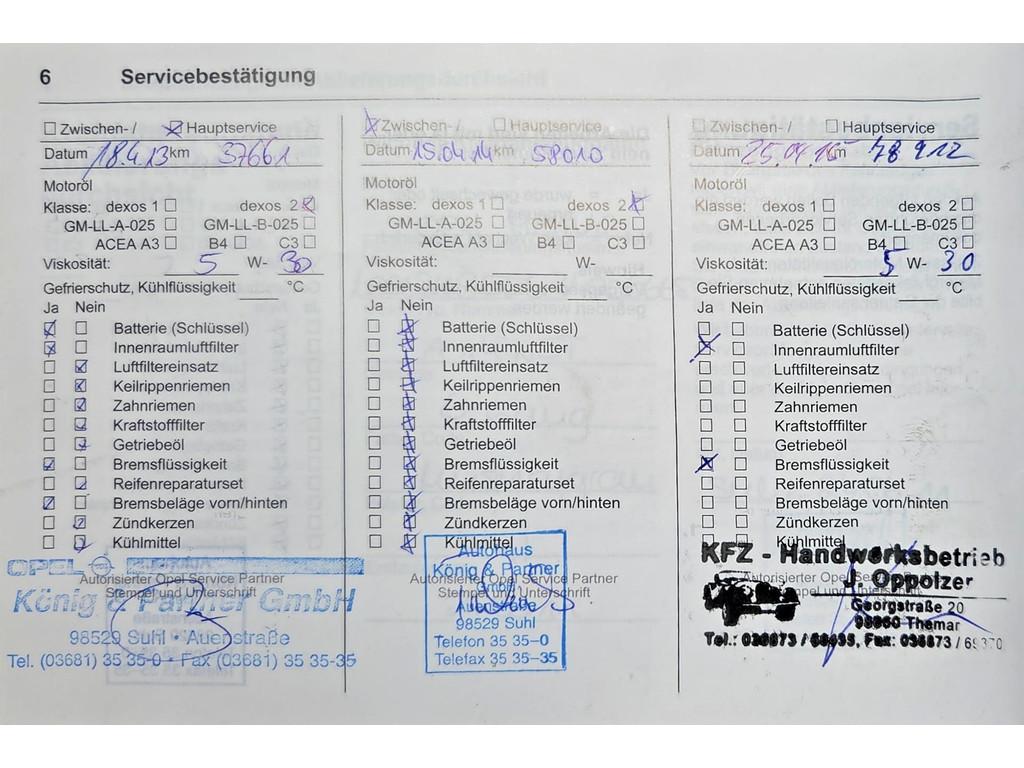 6 Servicebestätigung
Zwischen- / Hauptservice
Datum 18.4.13 km 37661
Motoröl
Klasse: dexos 1 dexos 2
GM-LL-A-025 GM-LL-B-025
ACEA A3 B4 C3
Viskosität: 5 W- 30
Gefrierschutz, Kühlflüssigkeit °C
Ja Nein
Batterie (Schlüssel)
Innenraumluftfilter
Luftfiltereinsatz
Keilrippenriemen
Zahnriemen
Kraftstofffilter
Getriebeöl
Bremsflüssigkeit
Reifenreparaturset
Bremsbeläge vorn/hinten
Zündkerzen
Kühlmittel
OPEL
Autorisierter Opel Service Partner
Stempel und Unterschrift
König & Partner GmbH
98529 Suhl • Auenstraße
Tel. (03681) 35 35-0 • Fax (03681) 35 35-35
Zwischen- / Hauptservice
Datum 15.04.14 km 58010
Motoröl
Klasse: dexos 1 dexos 2
GM-LL-A-025 GM-LL-B-025
ACEA A3 B4 C3
Viskosität: W-
Gefrierschutz, Kühlflüssigkeit °C
Ja Nein
Batterie (Schlüssel)
Innenraumluftfilter
Luftfiltereinsatz
Keilrippenriemen
Zahnriemen
Kraftstofffilter
Getriebeöl
Bremsflüssigkeit
Reifenreparaturset
Bremsbeläge vorn/hinten
Zündkerzen
Kühlmittel
Autohaus
König & Partner
GmbH
Autorisierter Opel Service Partner
Stempel und Unterschrift
Auenstraße
98529 Suhl
Telefon 35 35-0
Telefax 35 35-35
Zwischen- / Hauptservice
Datum 25.04.15 km 78 912
Motoröl
Klasse: dexos 1 dexos 2
GM-LL-A-025 GM-LL-B-025
ACEA A3 B4 C3
Viskosität: 5 W- 30
Gefrierschutz, Kühlflüssigkeit °C
Ja Nein
Batterie (Schlüssel)
Innenraumluftfilter
Luftfiltereinsatz
Keilrippenriemen
Zahnriemen
Kraftstofffilter
Getriebeöl
Bremsflüssigkeit
Reifenreparaturset
Bremsbeläge vorn/hinten
Zündkerzen
Kühlmittel
KFZ - Handwerksbetrieb
J. Oppolzer
Georgstraße 20
98660 Themar
Tel.: 036873 / Fax: 036873 / 69370